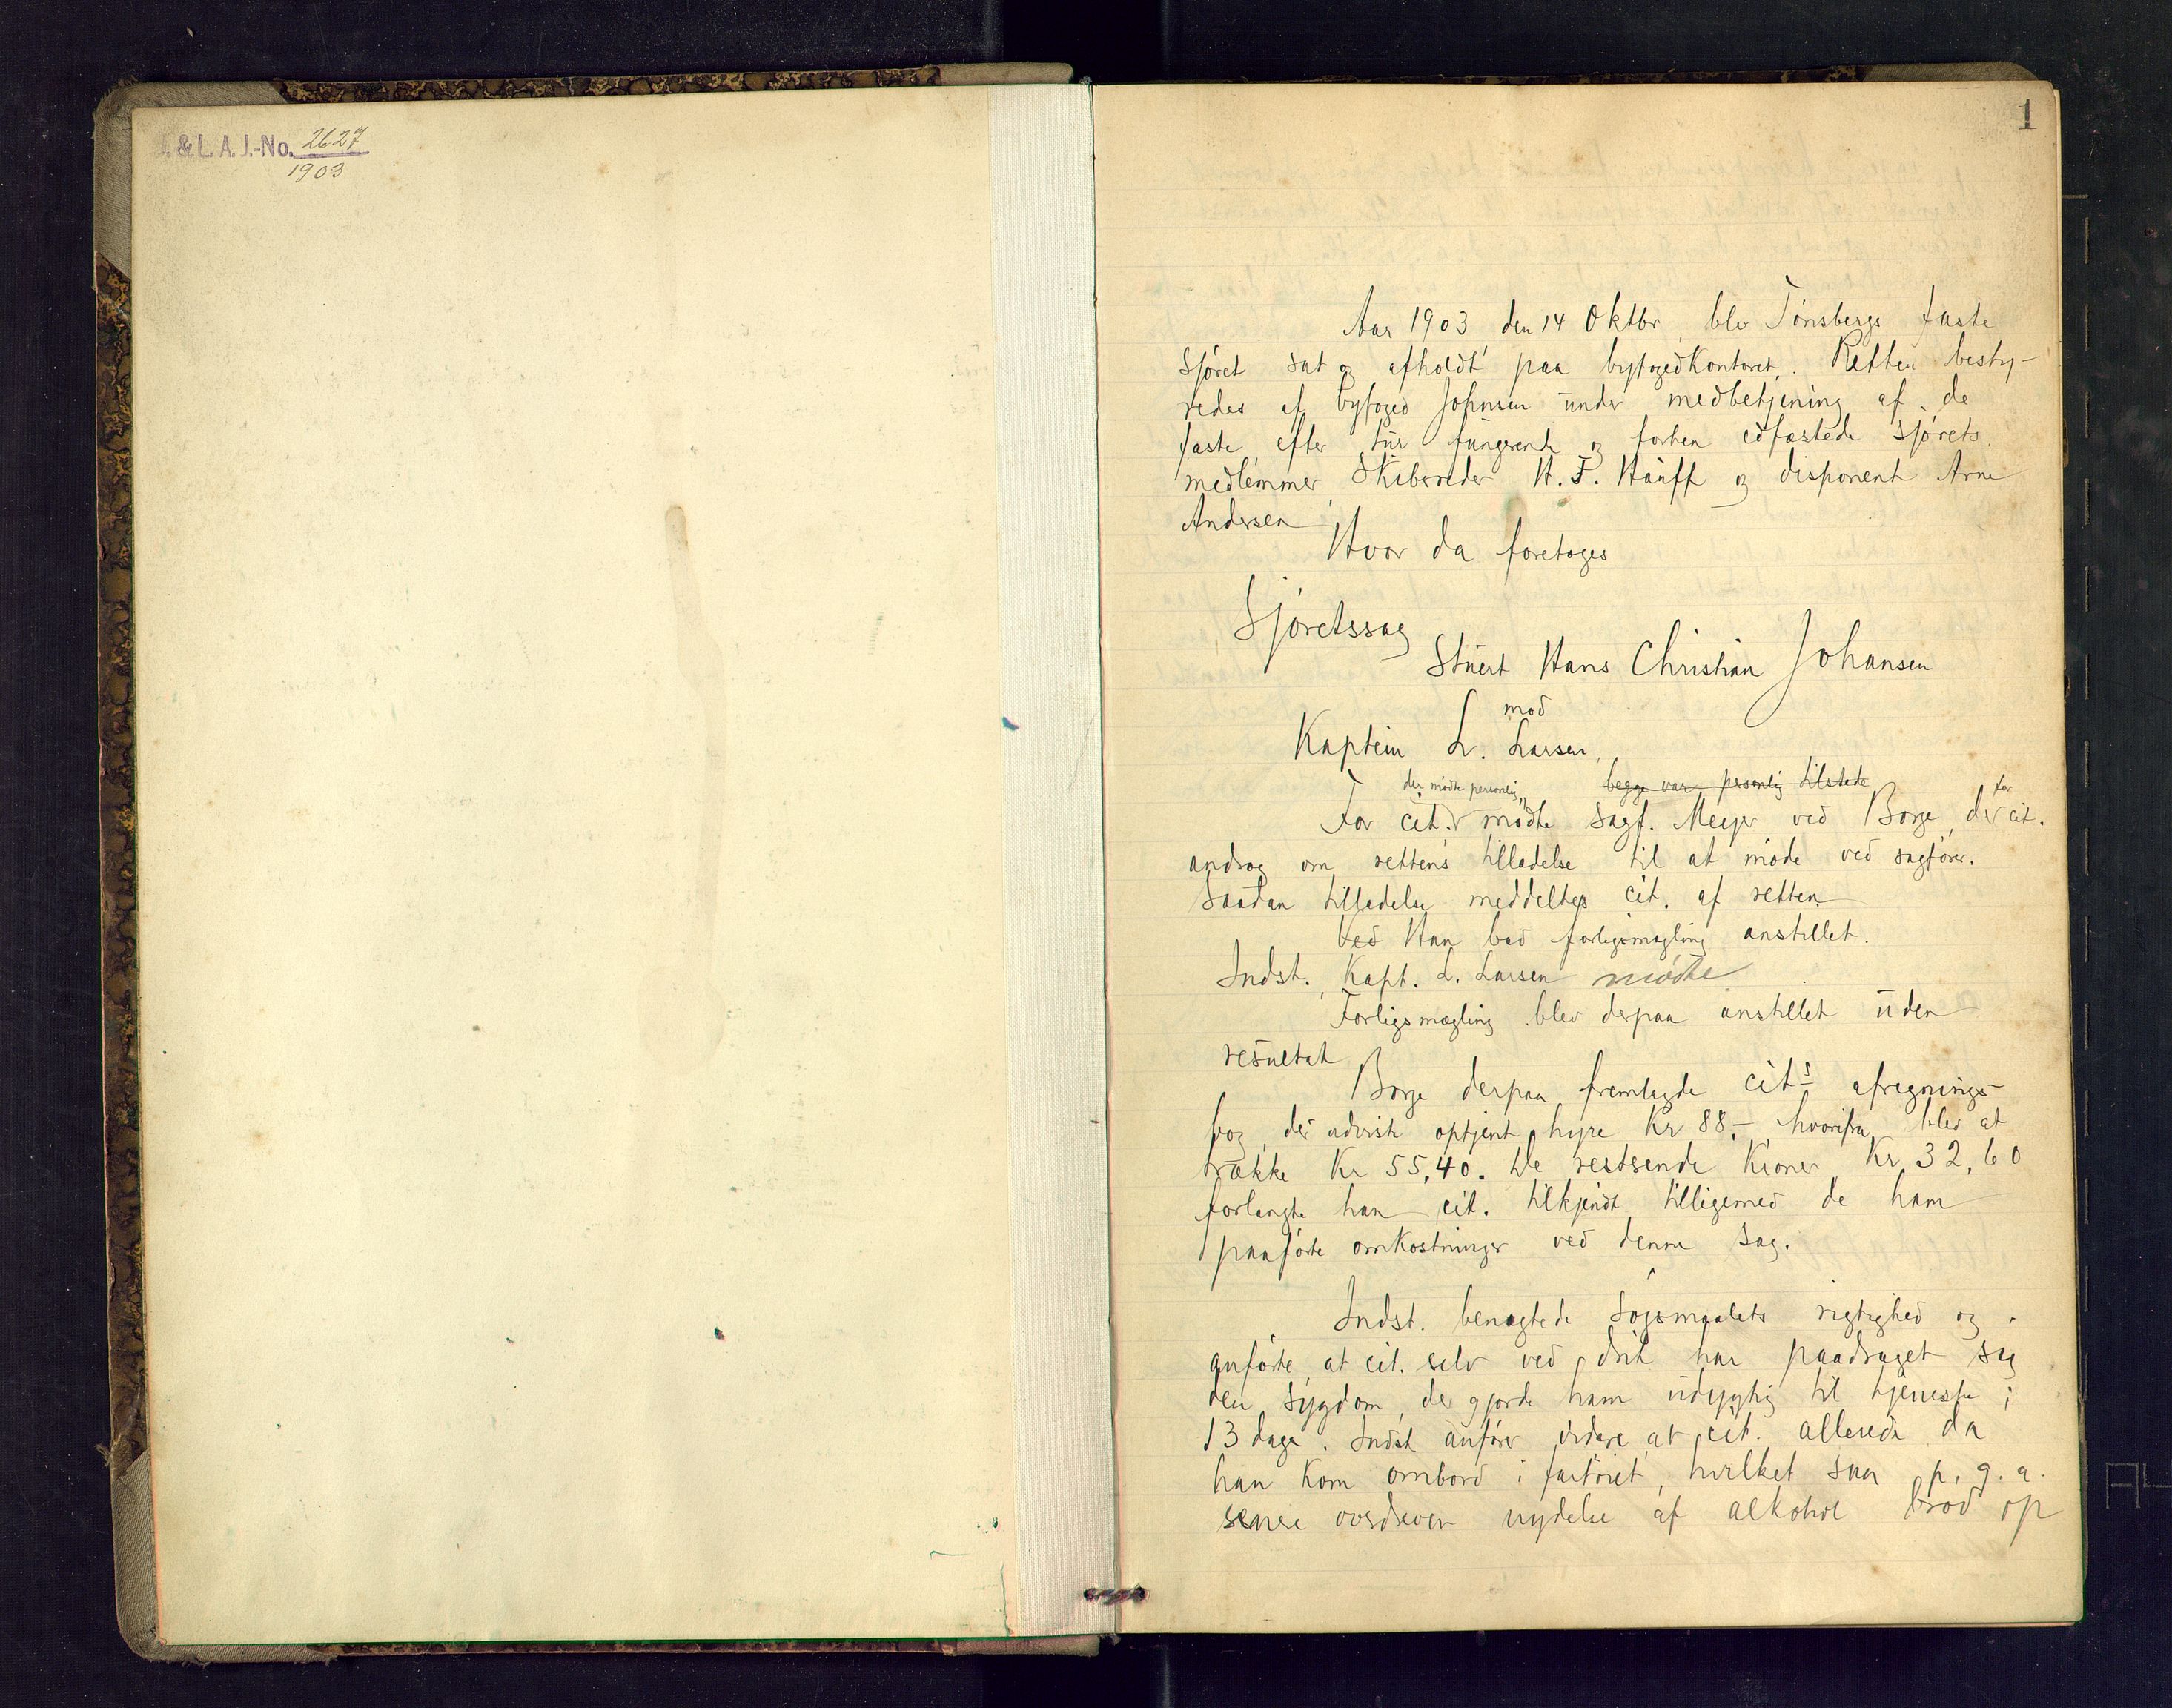 J. & L. A. J.-No. 2627
1903
1
Aar 1903 den 14 Oktbr. blev Tønsbergs faste
Sjøret sat og afholdt paa byfogedkontoret. Retten besty-
redes af byfoged Johnsen under medbetjening af de
faste efter tur fungerende og forhen edfæstede Sjørets
medlemmer Skibsreder H. F. Hauff og disponent Arne
Andersen
Hvor da foretoges
Sjøretssag
Stuert Hans Christian Johansen
mod
Kaptein L. Larsen,
der mødte personlig, begge var personlig tilstede
For cit. mødte Sagf. Meyer ved Borge, der for cit.
androg om rettens tilladelse til at møde ved sagfører.
Saadan tilladelse meddeltes cit. af retten
Ved Han bad forligsmægling anstillet.
Indst., Kapt. L. Larsen mødte
Forligsmægling blev derpaa anstillet uden
resultat
Borge derpaa fremlagde cits afregnings-
bog, der udviste optjent hyre Kr 88,- hvorifra blev at
trække Kr 55,40. De resterende Kroner Kr. 32,60
forlangte han cit. tilkjendt tilligemed de ham
paaførte omkostninger ved denne Sag.
Indst. benægtede Søgsmaalets rigtighed og
anførte, at cit. selv ved drik har paadraget sig
den Sygdom, der gjorde ham udygtig til tjeneste i
13 dage. Indst anfører videre at cit. allerede da
han kom ombord i fartøiet, hvilket saa p. g. a.
senere overdreven nydelse af alkohol brød op